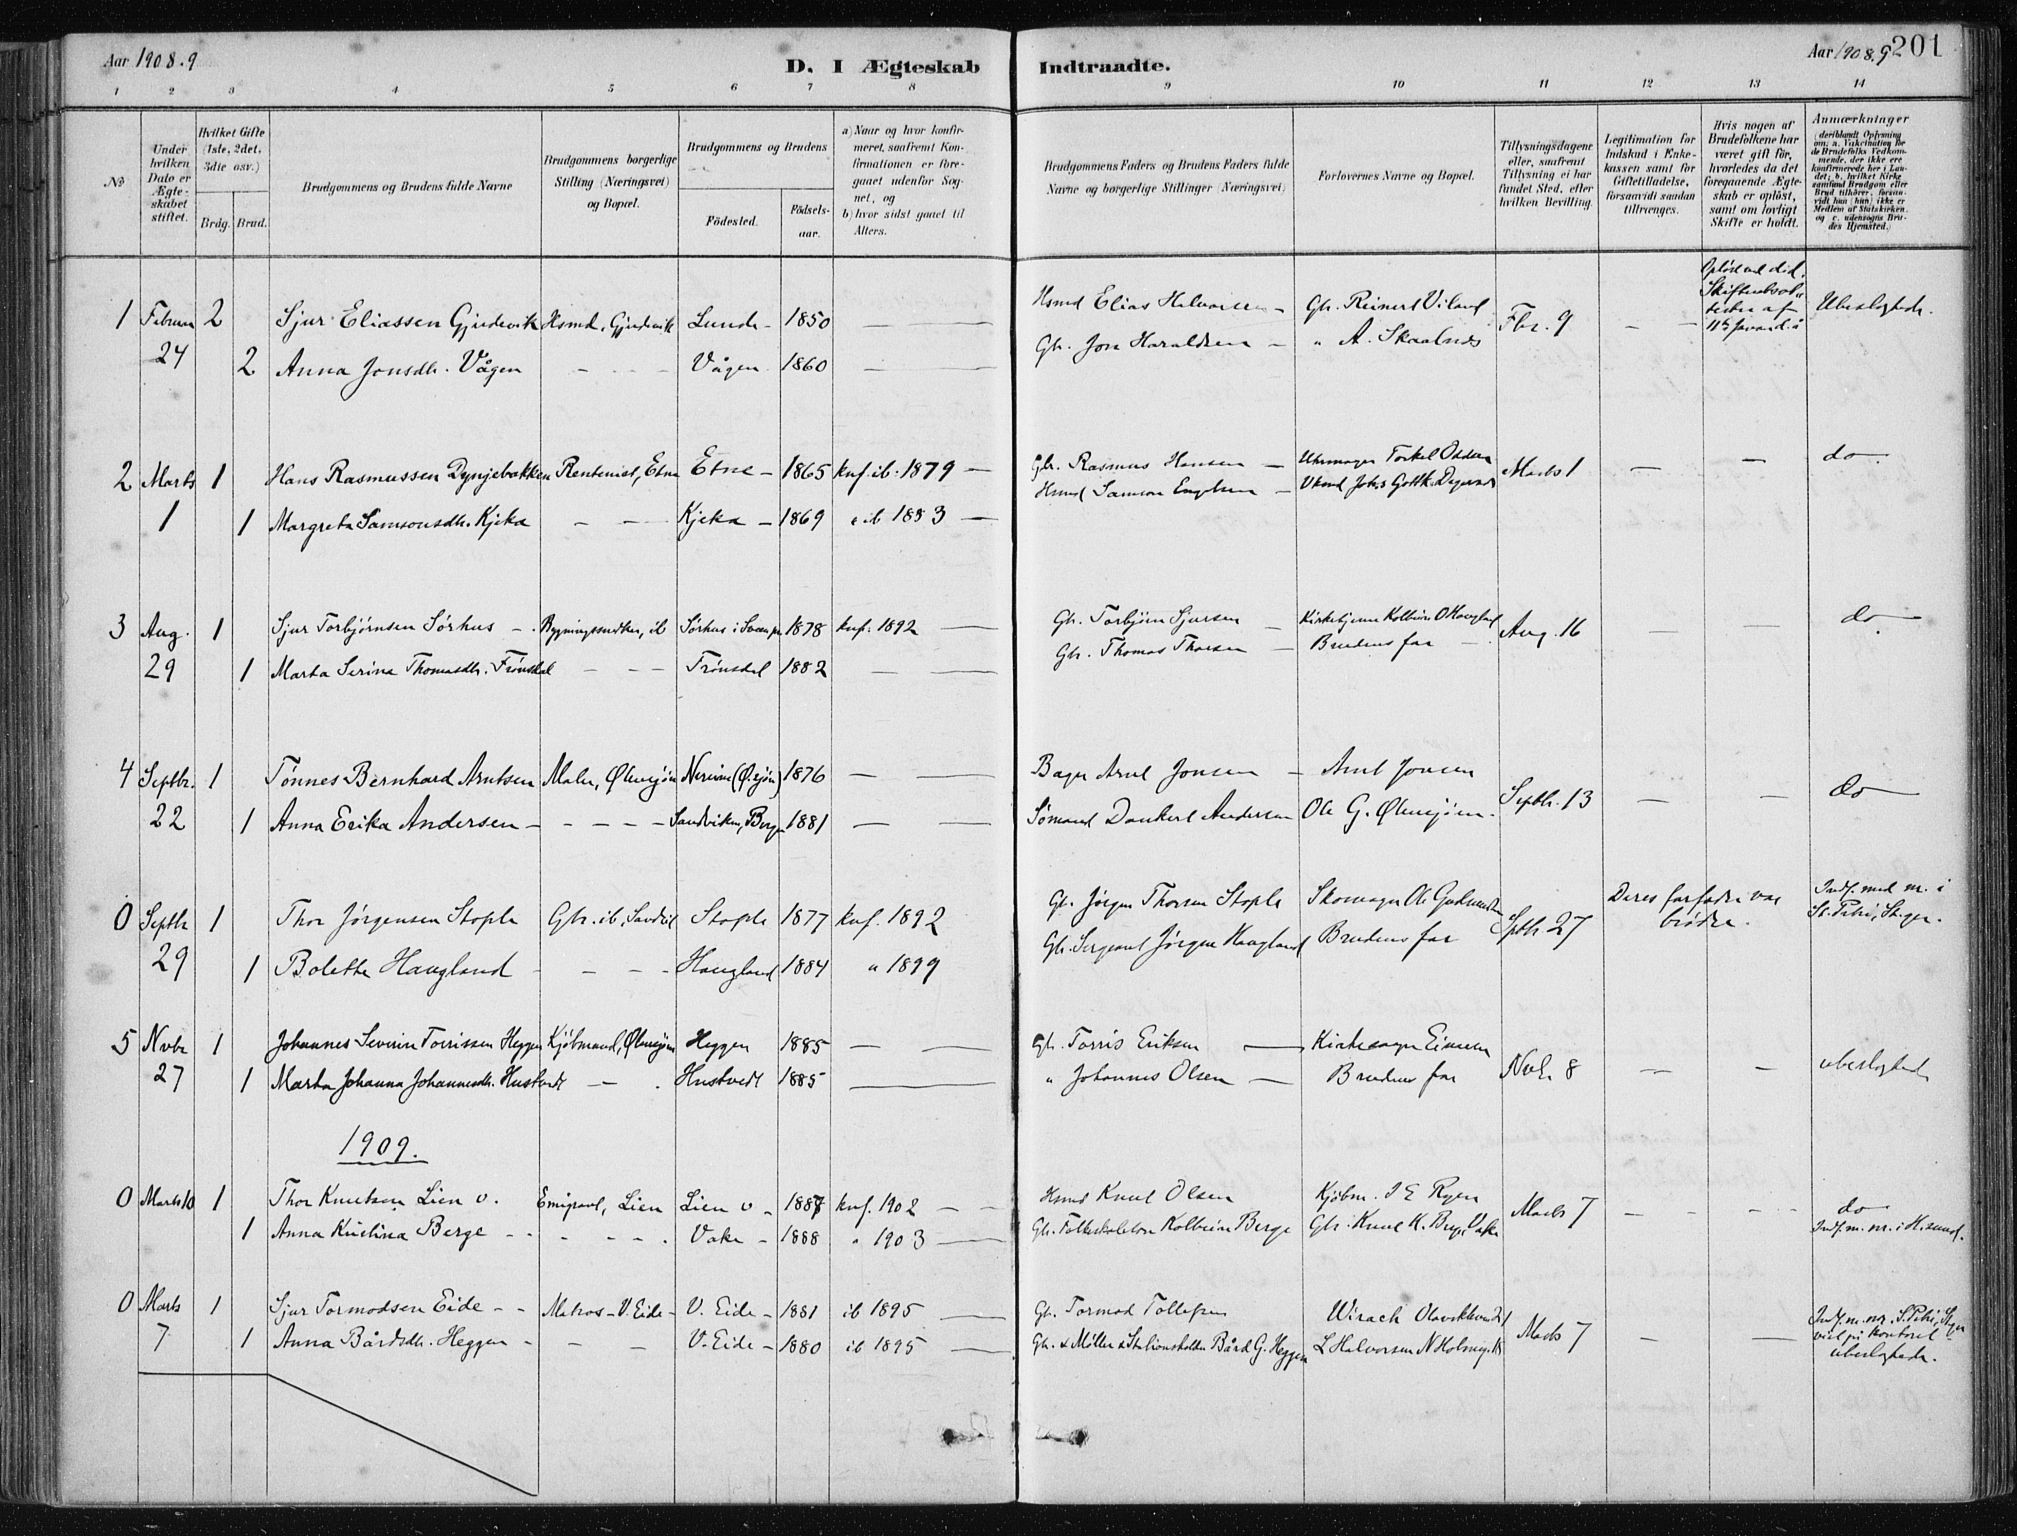 Aar 1908.9
D. I Ægteskab Indtraadte.
Aar 1908.9
201
1 2 3 4 5 6 7 8 9 10 11 12 13 14
No
Under hvilken Dato er Ægteskabet stiftet.
Hvilket Gifte (1ste, 2det, 3die osv.)
Brdg. Brud.
Brudgommens og Brudens fulde Navne
Brudgommens borgerlige Stilling (Næringsvei) og Bopæl.
Brudgommens og Brudens
Fødested.
Fødselsaar.
a) Naar og hvor konfirmeret, saafremt Konfirmationen er foregaaet udenfor Sognet, og
b) hvor sidst gaaet til Alters.
Brudgommens Faders og Brudens Faders fulde Navne og borgerlige Stillinger (Næringsvei).
Forlovernes Navne og Bopæl.
Tillysningsdagene eller, saafremt Tillysning ei har fundet Sted, efter hvilken Bevilling.
Legitimation for Indskud i Enkekassen samt for Giftetilladelse, forsaavidt saadan tiltrænges.
Hvis nogen af Brudefolkene har været gift før, hvorledes da det foregaaende Ægteskab er opløst, samt om lovligt Skifte er holdt.
Anmærkninger (deriblandt Oplysning om: a. Vakcination for de Brudefolks Vedkommende, der ikke ere konfirmerede her i Landet; b. hvilket Kirkesamfund Brudgom eller Brud tilhører, forsaavidt han (hun) ikke er Medlem af Statskirken, og c. udensogns Brudes Hjemsted.)
1 Februar 2 Sjur Eliassen Gjudevik Hsmd, Gjudevik Lunde - 1850 — — Hsmd Elias Halvorsen - Gbr. Reinert Viland Fbr. 9 — — Ubeslægtede.
24 2 Anna Jonsdtr. Vågen - - - Vågen 1860 — — Gbr. Jon Haraldsen - " A. Skaalnes
2 Marts 1 Hans Rasmussen Dynjebakken Rentenist, Etne Etne - 1865 knf. ib. 1879 — Gbr. Rasmus Hansen — Uhrmager Torkel Marts 1 — — do.
1 1 Margreta Samsonsdtr. Kjeka - - - Kjeka - 1869 " ib 1883 — Hsmd Samson Engelsen —
3 Aug. 1 Sjur Torbjørnsen Sørhus - Bygningssnedker, ib Sørhus i 1878 knf. 1892 — Gbr. Torbjørn Sjursen — Kirketjener Kolbein O Haugland Aug. 16 — do.
29 1 Marta Serina Thomasdtr. Frønsdal - - - Frønsdal 1882 — — Gbr. Thomas Thorsen — Brudens far -
4 Septbr. 1 Tønnes Bernhard Arntsen Maler, Ølensjøen (Ø.sjøen) 1876 — — Bager Arnt Jonsen — Arnt Jonsen Septbr. 13 — — do
22 1 Anna Erika Andersen - - - - Sandviken, Bergen 1881 — — Sømand Dankert Andersen Ole G. Ølensjøen.
0 Septbr 1 Thor Jørgensen Stople Gbr. ib, Sandeid Stople 1877 knf. 1892 Gbr. Jørgen Thorsen Stople Skomager Ole Sptbr. 27 Deres farfædre var brødre. Indf. med nr. i St. Petri, St.ger.
29 1 Bolette Haugland - - - Haugland 1884 " 1899 Gbr. Sergeant Jørgen Haugland Brudens far
5 Nvbr 1 Johannes Severin Torrissen Heggen Kjøbmand, Ølensjøen Heggen 1885 — — Gbr. Torris Eriksen — Kirkesanger Nvbr. 8 — — ubeslægtede
27 1 Marta Johanna Johannesdtr. Hustvedt - . Hustvedt 1885 — " Johannes Olsen — Brudens far
1909.
0 Marts 10 1 Thor Knutsen Lien v. Emigrant, Lien Lien v - 1887 knf. 1902 — — Hsmd Knut Olsen Kjøbm. I E Rygen Marts 7 - - - - do
1 Anna Kristina Berge - - - - - Vake - 1888 " 1903 — Gbr. Folkeskolelær Kolbein Berge Gbr. Knut K. Berge Vake Indf. m. nr. i H.sund.
0 Marts 1 Sjur Tormodsen Eide - - Matros - V. Eide - V. Eide - 1881 ib 1895 — Gbr. Tormod Tollefsen Wirach Olavskleven 21 Marts 7 — — Indf. m. nr. S. Petri, St.ger
7 1 Anna Bårdsdtr. Heggen - - - V. Eide - 1880 ib 1895 — Gbr. & Møller & Stationsholder Bård G. Heggen L Halvorsen N Holmeg. 18 viet på kontoret ubeslægtede.